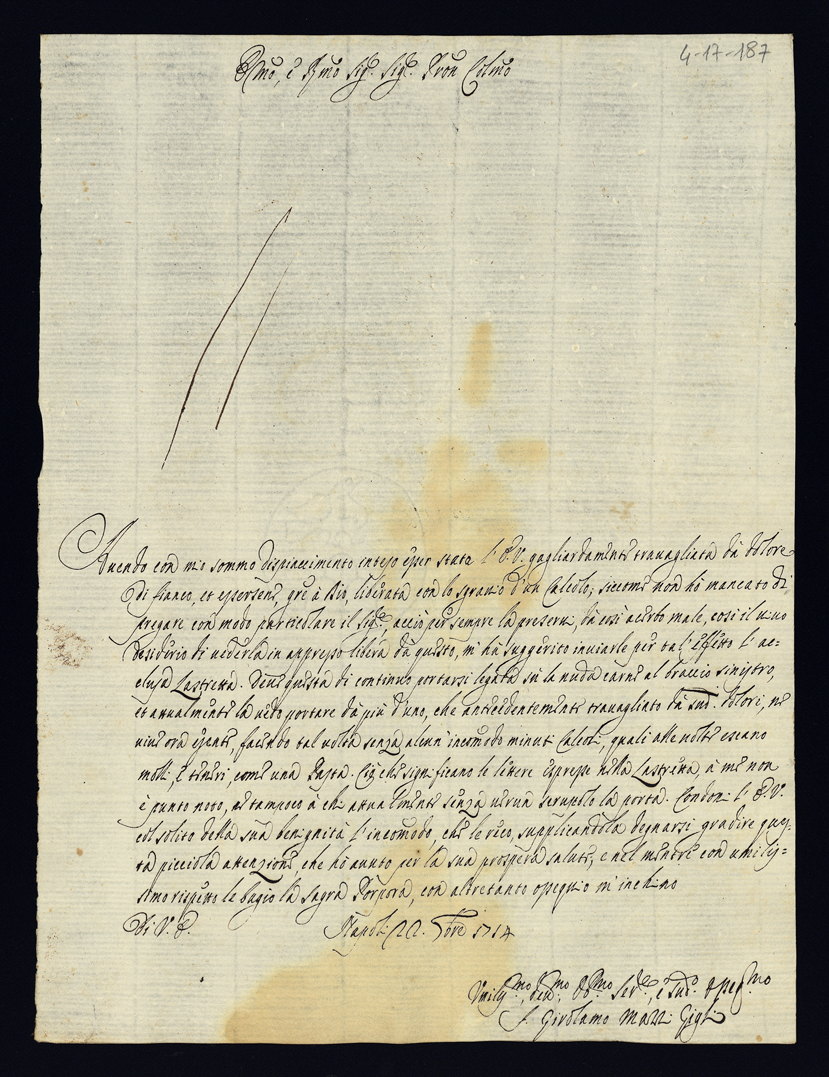 4-17-187
Em̃o, e Rmo Sig.r Sig.r Pron Colmo
Avendo con mio sommo dispiacimento inteso esser stata l'E.V. gagliardamente travagliata da dolore
di fianco, et essersene, gre à Dio, liberata con lo sgravio d'un Calcolo; siccome non hò mancato di
pregare con modo particolare il Sig.re, acciò per sempre la preservi, da così acerbo male, così il vivo
desiderio di vederla in appresso libera da questo, m'hà suggerito inviarle per tal'effetto l'ac-
clusa Lastretta. Deve questa di continuo portarsi legata sù la nuda carne al braccio sinistro,
et attualmente la vedo portare da più d'uno, che antecedentemente travagliato da sud.i dolori, ne
vive ora esente, facendo tal volta senza alcun'incomodo minuti Calcoli, quali alle volte escano
molli, e teneri, come una Pasta. Ciò che significano le lettere impresse nella Lastrina, à me non
è punto noto, ne tampoco à chi attualmente senza verun scrupolo la porta. Condoni l'E.V.
col solito della sua benignità l'incomodo, che le reco, supplicandola degnarsi gradire ques-
ta picciola attenzione, che hò avuto per la sua prospera salute, e nel mentre con umilis-
simo rispetto le bagio la Sagra Porpora, con altretanto ossequio m'inchino
Di V.E. Napoli 22. 1714
Umiliss.mo, dev.mo Ob.mo Ser.re, e osseq.mo
F. Girolamo Gigli